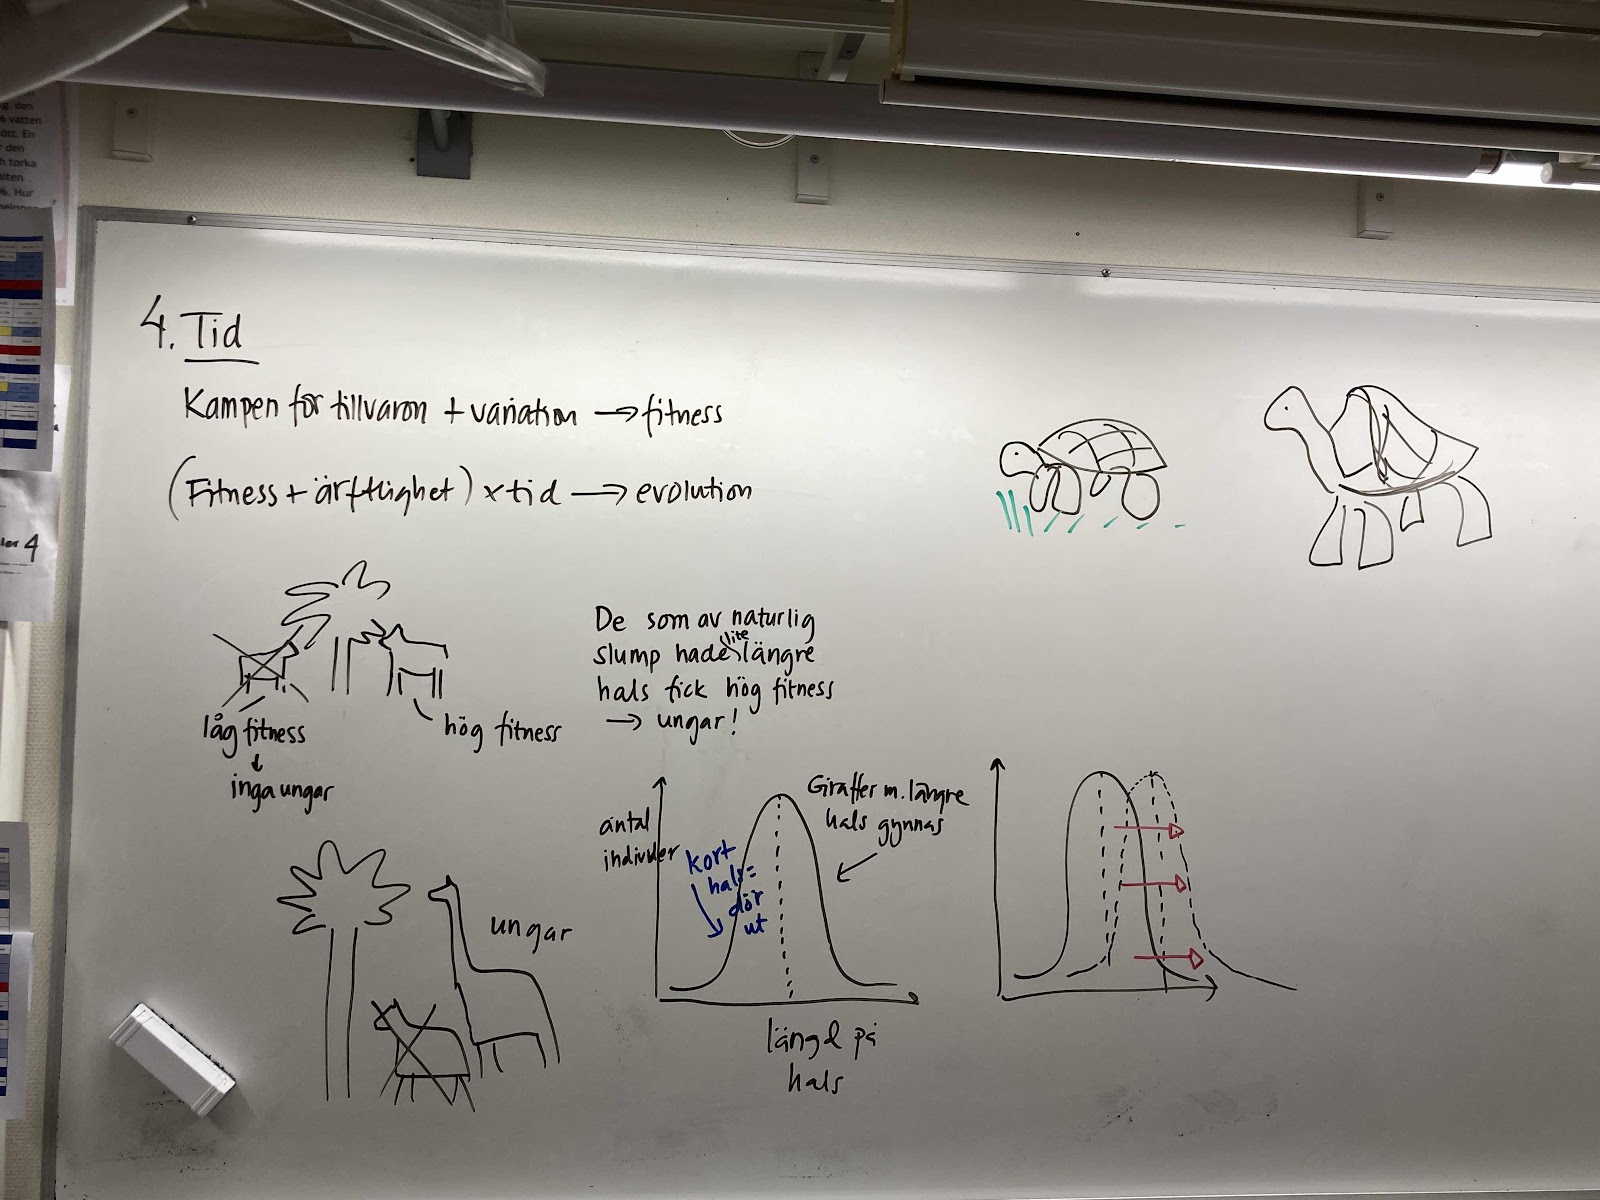 g. den
vatten
ött. En
r den
torka
alten
%. Hur
4
4. Tid
Kampen för tillvaron + variation → fitness
(Fitness + ärftlighet) x tid → evolution
låg fitness
↓
inga ungar
hög fitness
De som av naturlig
slump hade lite längre
hals fick hög fitness
→ ungar!
ungar
antal
individer
kort
hals =
dör
ut
Giraffer m. längre
hals gynnas
längd på
hals